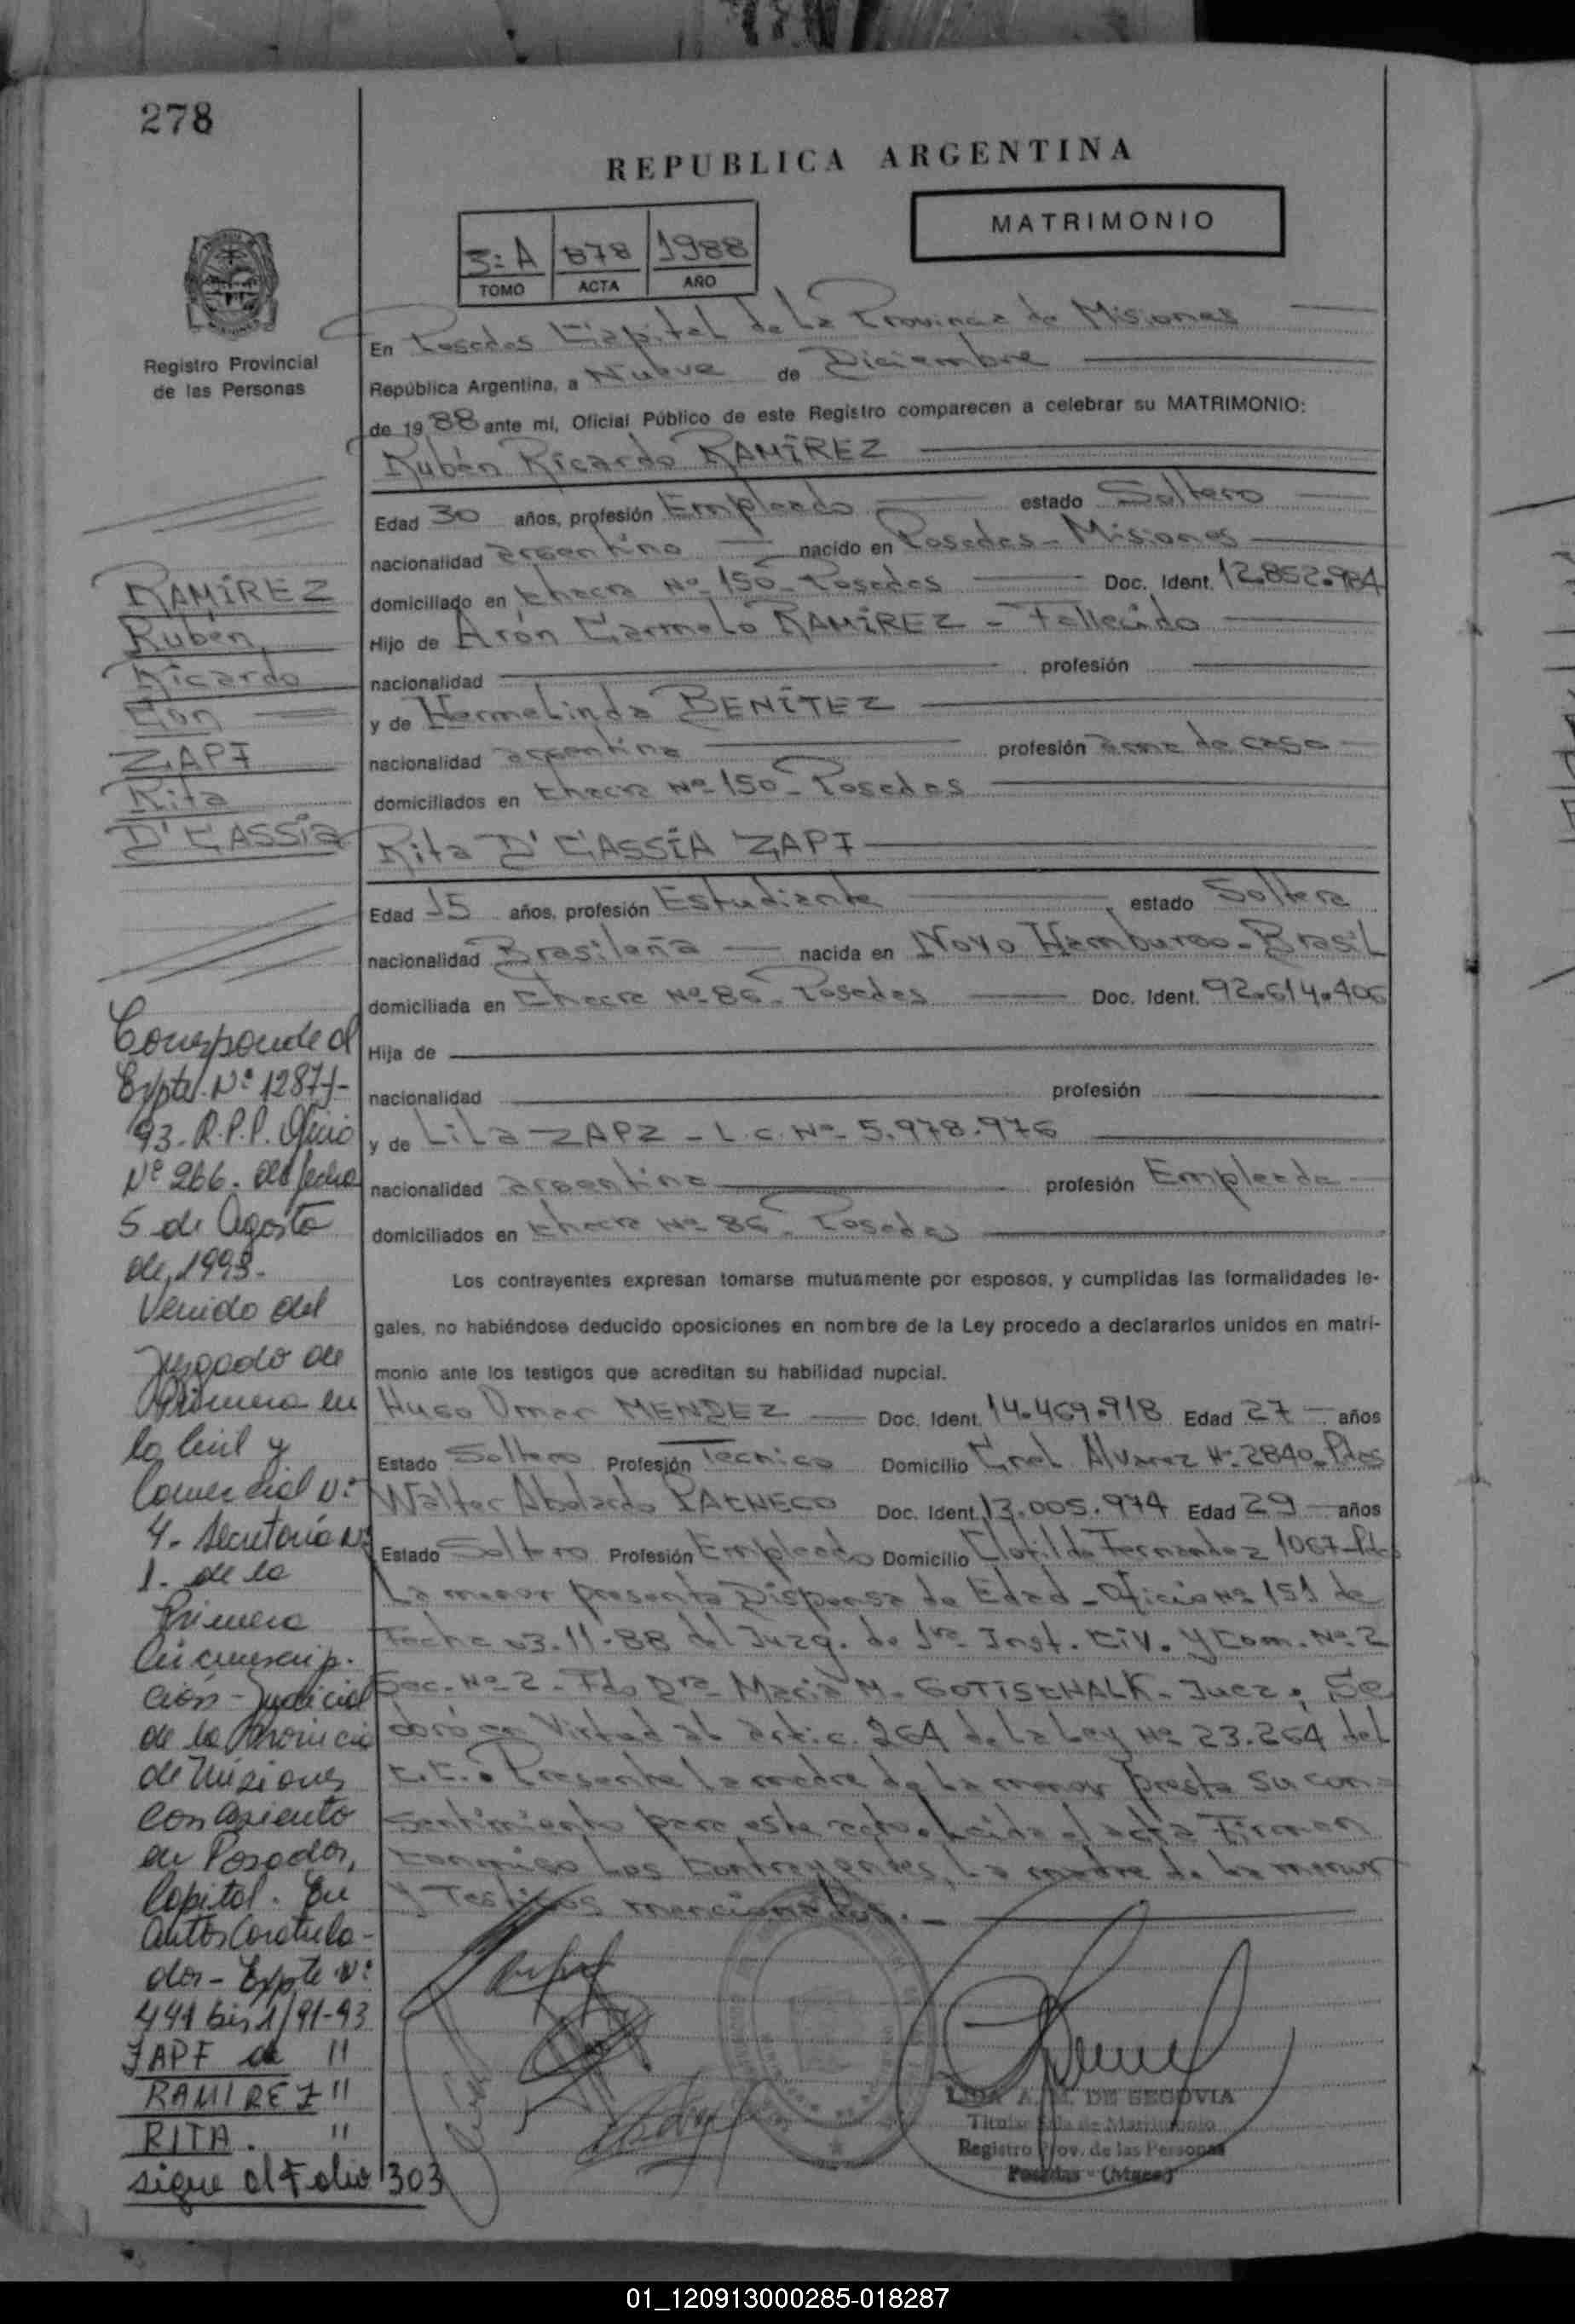 278
REPUBLICA ARGENTINA
MATRIMONIO
3=A 878 1988
TOMO ACTA AÑO
Registro Provincial
de las Personas
En Posadas Capital de la Provincia de Misiones
República Argentina, a Nueve de Diciembre
de 1988 ante mí, Oficial Público de este Registro comparecen a celebrar su MATRIMONIO:
Rubén Ricardo RAMÍREZ
Edad 30 años, profesión Empleado estado Soltero
nacionalidad argentino nacido en Posadas - Misiones
domiciliado en Chacra Nº 150 - Posadas Doc. Ident. 12.852.984
Hijo de Arón Carmelo RAMÍREZ - Fallecido
nacionalidad profesión
y de Hermelinda BENÍTEZ
nacionalidad argentina profesión ama de casa
domiciliados en Chacra Nº 150 - Posadas
Rita D' CASSÍA ZAPF
Edad 15 años, profesión Estudiante estado Soltera
nacionalidad Brasileña nacida en Novo Hamburgo - Brasil
domiciliada en Chacra Nº 86 - Posadas Doc. Ident. 92.614.406
Hija de
nacionalidad profesión
y de Lila ZAPF - L.C. Nº 5.978.976
nacionalidad argentina profesión Empleada
domiciliados en Chacra Nº 86 - Posadas
Los contrayentes expresan tomarse mutuamente por esposos, y cumplidas las formalidades le-
gales, no habiéndose deducido oposiciones en nombre de la Ley procedo a declararlos unidos en matri-
monio ante los testigos que acreditan su habilidad nupcial.
Hugo Omar MENDEZ Doc. Ident. 14.469.918 Edad 27 años
Estado Soltero Profesión Tecnico Domicilio Gral. Alvarez Nº 2840 - Pdas
Walter Abelardo PACHECO Doc. Ident. 13.005.974 Edad 29 años
Estado Soltero Profesión Empleado Domicilio Clotilde Fernandez 1067 - Pdas
La menor presenta Dispensa de Edad - Oficio Nº 151 de
Fecha 03-11-88 del Juzg. de 1ra Inst. Civ. y Com. Nº 2
Sec. Nº 2 - Fdo Dra María M. GOTTSCHALK - Juez.
en Virtud al artic. 264 de la Ley Nº 23.264 del
C.C. Presente la madre de la menor presta su con-
sentimiento para este acto. Leída el acta Firman
conmigo los contrayentes, la madre de la menor
y Testigos mencionados.
LIDA A. M. DE SEGOVIA
Titular Sala de Matrimonio
Registro Prov. de las Personas
Posadas - (Mnes)
RAMÍREZ
Rubén
Ricardo
Con
ZAPF
Rita
D' CASSÍA
Corresponde al
Expte. Nº 1287-J-
93- R.P.P. Oficio
Nº 266. de fecha
5 de Agosto
de, 1993.
Venido del
Juzgado de
Primera en
lo Civil y
Comercial Nº
4. Secretoria Nº
1. de la
Primera
Circunscrip-
ción - Judicial
de la Provincia
de Misiones
con asiento
en Posadas,
Capital. En
autos Caratula-
dos - Expte Nº
441 bis 1/91-93
ZAPF de "
RAMIREZ "
RITA. "
sigue al Folio 303
01_120913000285-018287